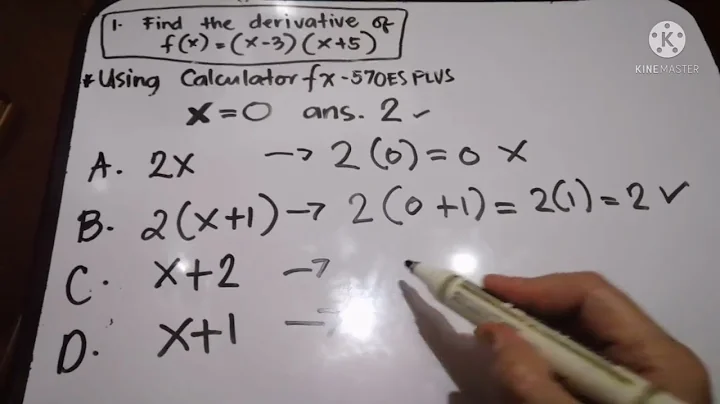 1. Find the derivative of
f(x) = (x-3)(x+5)
* Using Calculator fx-570ES PLUS
x=0 ans. 2 ✓
A. 2x → 2(0) = 0 ✗
B. 2(x+1) → 2(0+1) = 2(1) = 2 ✓
C. x+2 →
D. x+1 →
KINEMASTER